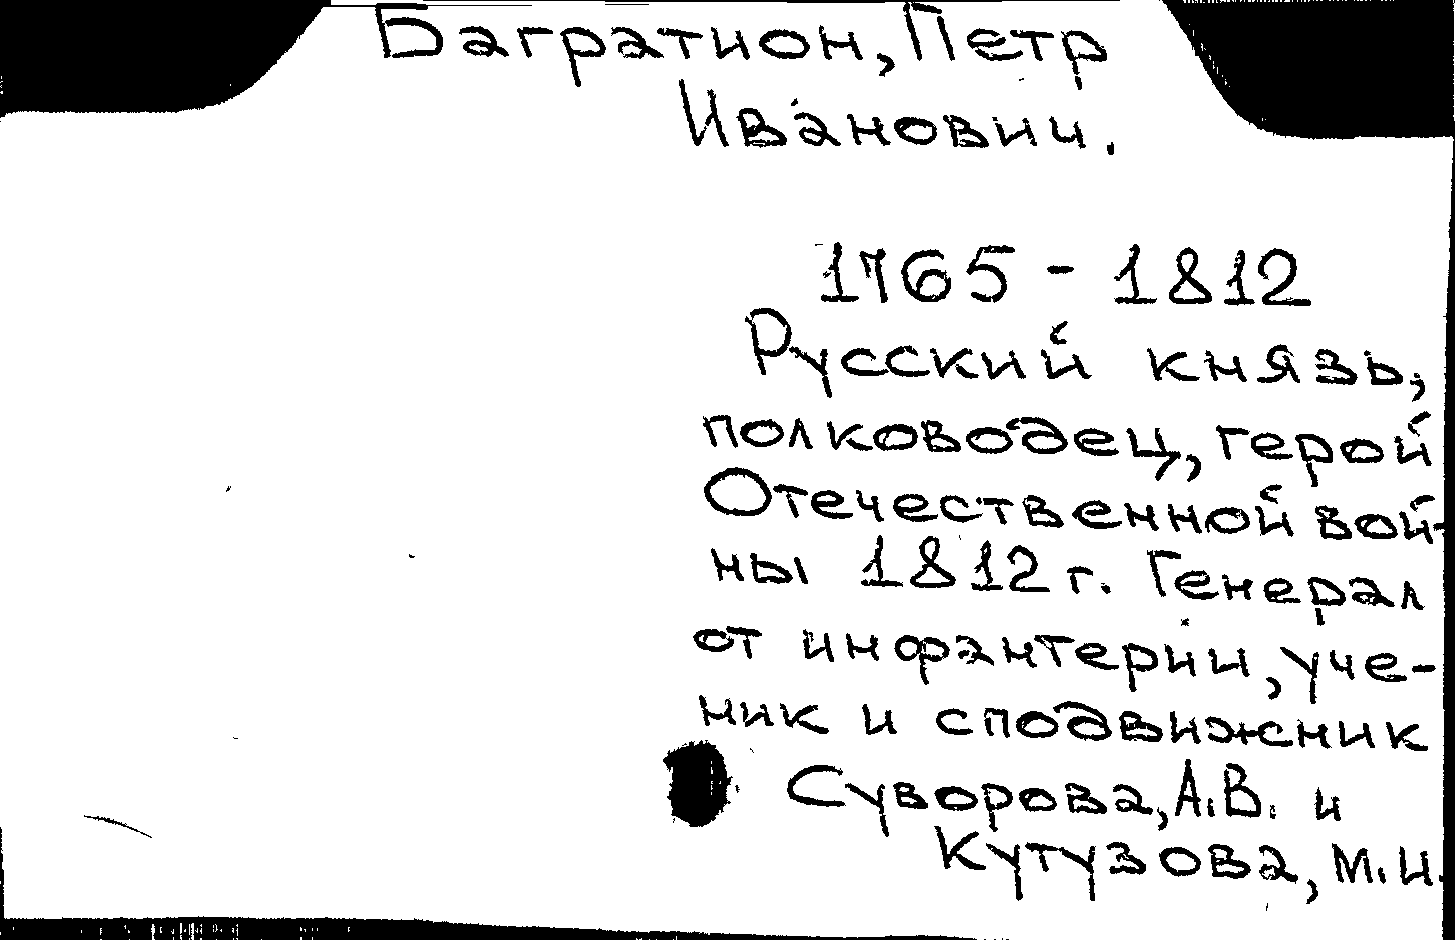 Багратион, Петр
Иванович.
1765 - 1812
Русский князь,
полководец, герой
Отечественной вой-
ны 1812 г. Генерал
от инфантерии, уче-
ник и сподвижник
Суворова, А.В. и
Кутузова, М.И.